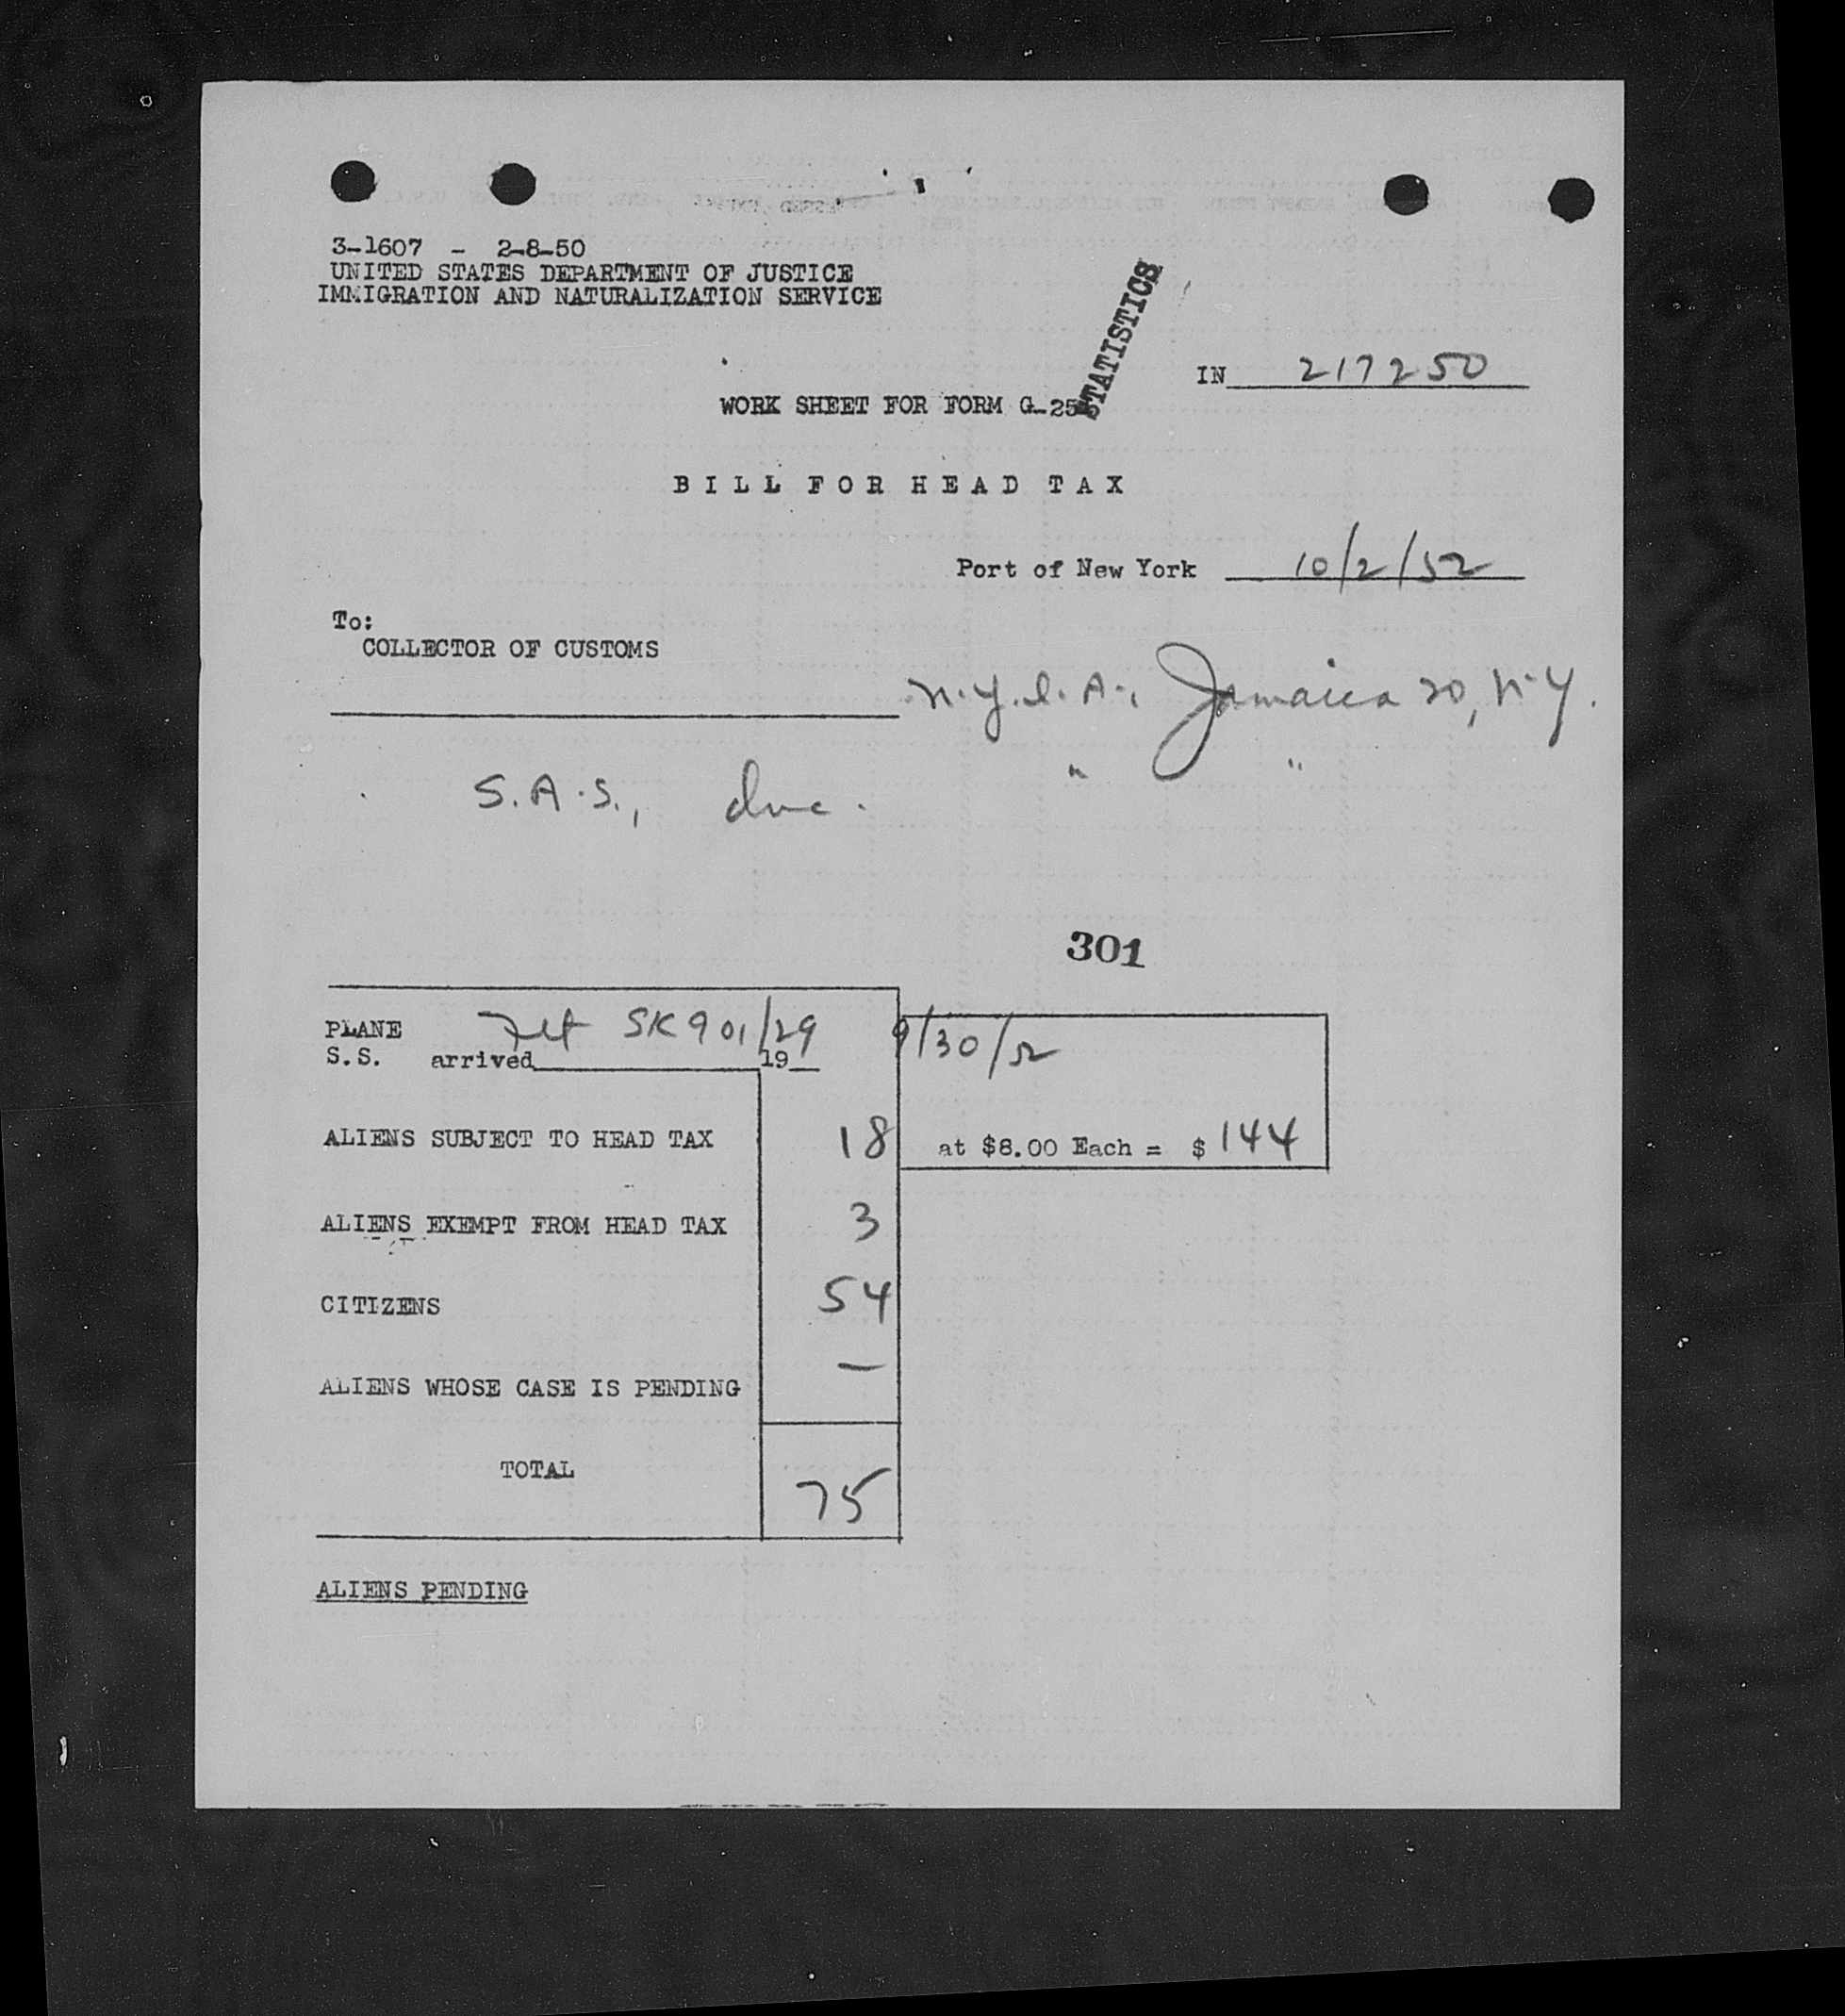 3-1607 - 2-8-50
UNITED STATES DEPARTMENT OF JUSTICE
IMMIGRATION AND NATURALIZATION SERVICE
STATISTICS
IN 217250
WORK SHEET FOR FORM G-25
BILL FOR HEAD TAX
Port of New York 10/2/52
To:
COLLECTOR OF CUSTOMS
N.Y.I.A., Jamaica 20, N.Y.
S.A.S., Inc. " "
301
PLANE Flt SK901/29 9/30/52
S.S. arrived 19
ALIENS SUBJECT TO HEAD TAX 18 at $8.00 Each = $ 144
ALIENS EXEMPT FROM HEAD TAX 3
CITIZENS 54
ALIENS WHOSE CASE IS PENDING —
TOTAL 75
ALIENS PENDING